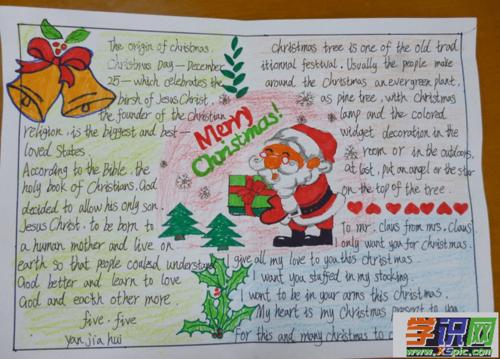 The origin of christmas.
Christmas Day — December
25 — which celebrates the
birsh of Jesus Christ,
the founder of the Christian
religion, is the biggest and best —
loved States.
According to the Bible, the
holy book of Christians, God
decided to allow his only son,
Jesus Christ, to be born to
a human mother and live on
earth so that people could understand
God better and learn to love
God and eacth other more.
five. five
yan jia hui
Merry
Christmas!
Christmas tree is one of the old trad
itionnal festival. Usually the people make
around the Christmas an evergreen plant,
as pine tree, with Christmas
lamp and the colored
widget decoration in the
room or in the outdoors,
at last, put an angel or the star
on the top of the tree.
To mr. claus from mrs. claus
I only want you for christmas.
I give all my love to you this christmas.
I want you stuffed in my stocking.
I want to be in your arms this christmas.
My heart is my Christmas present to you
For this and many christmas to
学识网
www.xspic.com